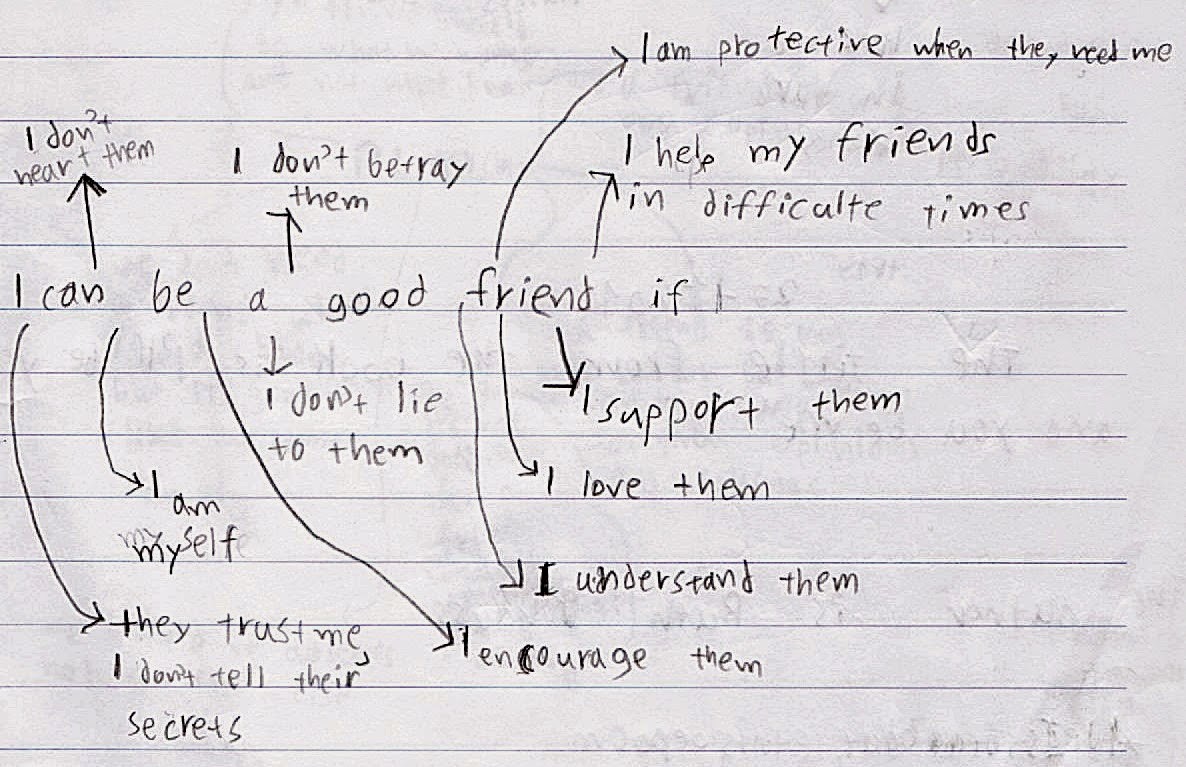 I am protective when they need me
I don't
heart them
I don't betray
them
I help my friends
in difficulte times
I can be a good friend if I
I don't lie
to them
I support them
I love them
I am
myself
I understand them
they trust me,
I don't tell their
secrets
I encourage them